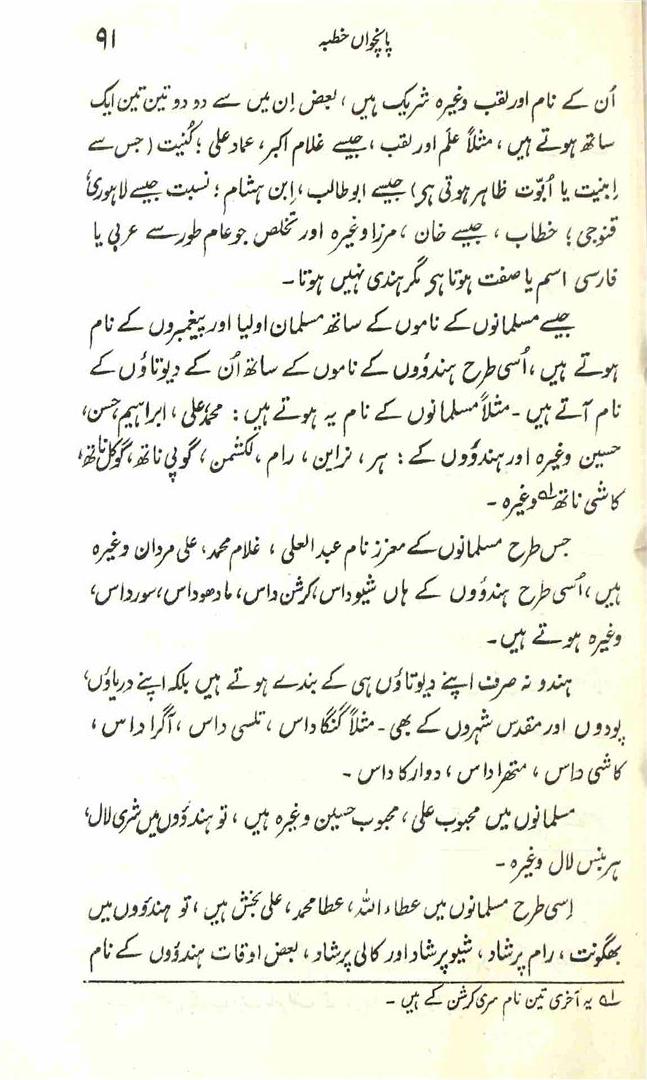 پانچواں خطبہ ۹۱
اُن کے نام اور لقب وغیرہ شریک ہیں، بعض اِن میں سے دو دو تین تین ایک
ساتھ ہوتے ہیں، مثلاً علَم اور لقب، جیسے غلام اکبر، عماد علی؛ کُنیت (جس سے
اِبنیت یا اُبوّت ظاہر ہوتی ہی) جیسے ابو طالب، اِبن ہشام؛ نسبت جیسے لاہوری،
قنوجی؛ خطاب، جیسے خان، مرزا وغیرہ اور تخلص جو عام طور سے عربی یا
فارسی اسم یا صفت ہوتا ہی مگر ہندی نہیں ہوتا۔
جیسے مسلمانوں کے ناموں کے ساتھ مسلمان اولیا اور پیغمبروں کے نام
ہوتے ہیں، اُسی طرح ہندوؤں کے ناموں کے ساتھ اُن کے دیوتاؤں کے
نام آتے ہیں۔ مثلاً مسلمانوں کے نام یہ ہوتے ہیں: محمد علی، ابراہیم حسن،
حسین وغیرہ اور ہندوؤں کے: ہر، نراین، رام، لکشمن، گوپی ناتھ، گوکل ناتھ،
کاشی ناتھ؂۱ وغیرہ۔
جس طرح مسلمانوں کے معزز نام عبد العلی، غلام محمد، علی مردان وغیرہ
ہیں، اُسی طرح ہندوؤں کے ہاں شیو داس، کرشن داس، مادھو داس، سور داس،
وغیرہ ہوتے ہیں۔
ہندو نہ صرف اپنے دیوتاؤں ہی کے بندے ہوتے ہیں بلکہ اپنے دریاؤں،
پودوں اور مقدس شہروں کے بھی۔ مثلاً گنگا داس، تلسی داس، آگرا داس،
کاشی داس، متھرا داس، دوارکا داس۔
مسلمانوں میں محبوب علی، محبوب حسین وغیرہ ہیں، تو ہندوؤں میں شری لال،
ہر بنس لال وغیرہ۔
اِسی طرح مسلمانوں میں عطاء اللہ، عطا محمد، علی بخش ہیں، تو ہندوؤں میں
بھگونت، رام پرشاد، شیو پرشاد اور کالی پرشاد، بعض اوقات ہندوؤں کے نام
؂۱ یہ آخری تین نام سری کرشن کے ہیں۔